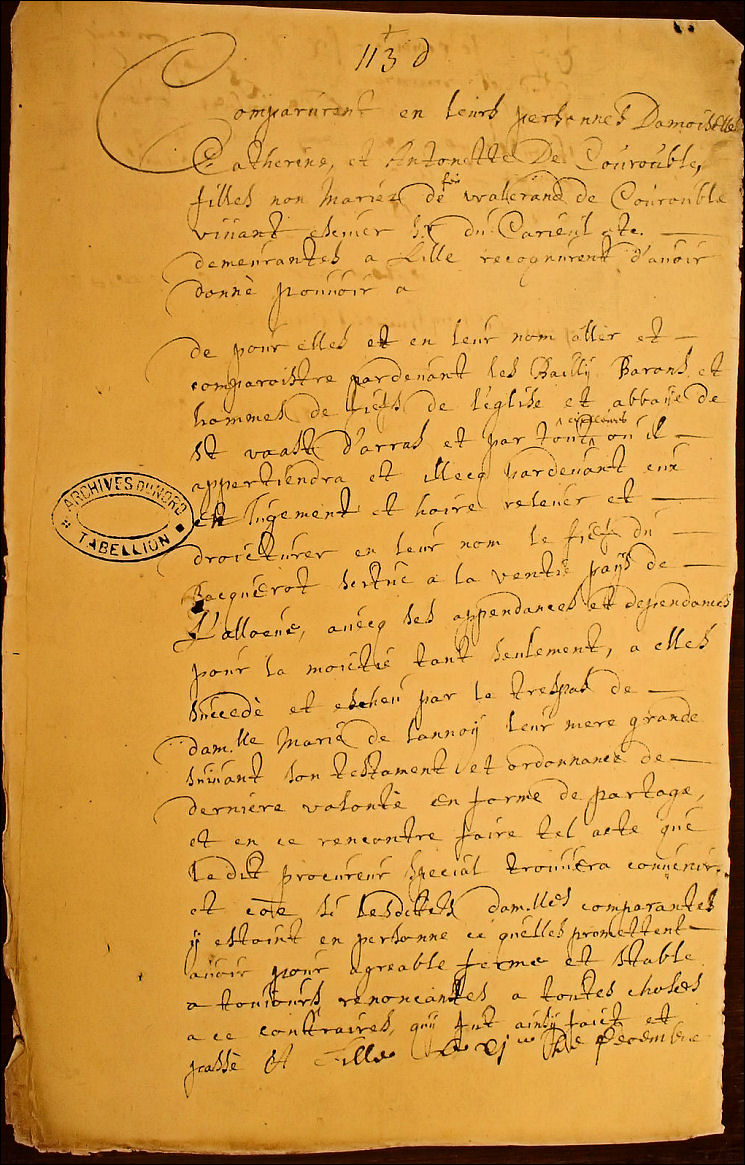 113 d
Comparurent en leurs personnes Damoiselles
Catherine, et Antonette De Courouble,
filles non Mariez de feu wallerand de Courouble
vivant escuier sr du Carieul etc.
demeurantes a Lille recognurent d'avoir
donnè pouvoir a
de pour elles et en leur nom aller et
comparoistre pardevant les Bailly Barons et
hommes de fiefs de l'eglise et abbaije de
st vaast d'arras et par tout ailleurs où il
appertiendra et illecq pardevant eux
en Jugement et hoire relever et
droicturer en leur nom le fief du
Bacquerot scitué a la ventie pays de
Lalloeue, avecq ses appendances et dependances
pour la moictié tant seulement, a elles
succedè et escheu par le trespas de
dam.lle Marie de Lannoij leur mere grande
suivant son testament et ordonnance de
derniere volontè en forme de partage,
et en ce rencontre faire tel acte que
ledit procureur special trouvera convenir
et cōe si lesdittes dam.lles comparantes
ij estoint en personne ce qu'elles promettent
avoir pour agreable ferme et stable
a tousiours renoncantes a toutes choses
a ce contraires, quij fut ainsij faict et
passè A Lille le xje de Decembre
ARCHIVES DU NORD
TABELLION